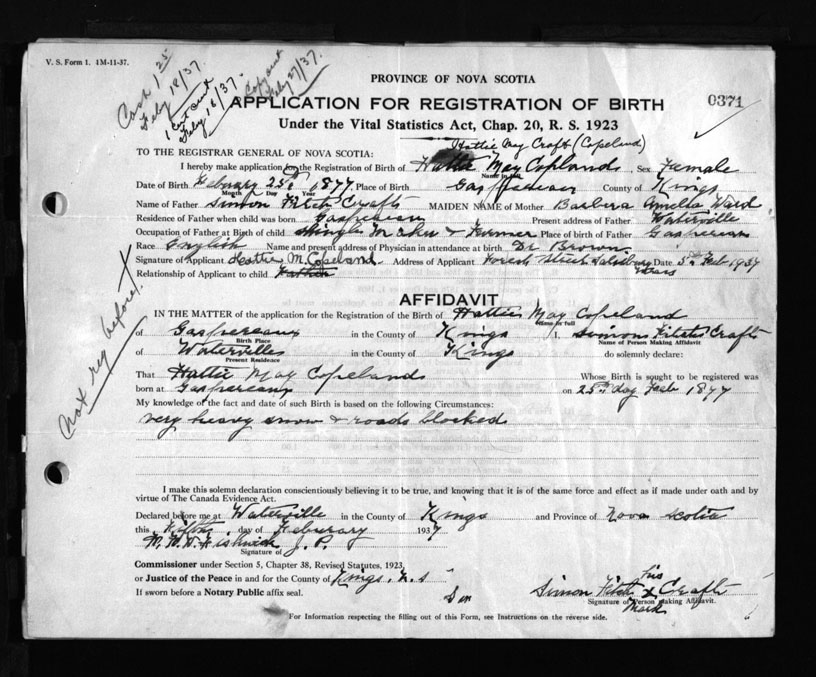 V. S. Form 1. 1M-11-37.
Cash 1 25
Feby 18/37.
1 cert sent
Feby 18/37.
Copy sent
Feby 27/37.
PROVINCE OF NOVA SCOTIA
APPLICATION FOR REGISTRATION OF BIRTH
0371
Under the Vital Statistics Act, Chap. 20, R. S. 1923
Hattie May Craft (Copeland)
TO THE REGISTRAR GENERAL OF NOVA SCOTIA:
I hereby make application for the Registration of Birth of Hattie May Copland Sex Female
Name in full
Date of Birth 25 1877, Place of Birth County of Kings
Month Day Year
Name of Father Simon Crafts MAIDEN NAME of Mother Barbera Amelia Ward
Residence of Father when child was born Present address of Father Waterville
Occupation of Father at Birth of child Shingle Maker & Farmer Place of birth of Father
Race English Name and present address of Physician in attendance at birth Dr Brown.
Signature of Applicant Hattie M. Copeland. Address of Applicant Street Date 5th Feb 1937
Relationship of Applicant to child
AFFIDAVIT
IN THE MATTER of the application for the Registration of the Birth of Hattie May Copeland
Name in full
of Gaspereaux in the County of Kings I, Simon Crafts
Birth Place Name of Person Making Affidavit
of Waterville in the County of Kings do solemnly declare:
Present Residence
That Hattie May Copeland Whose Birth is sought to be registered was
born at Gaspereaux on 25th day Feb 1877
My knowledge of the fact and date of such Birth is based on the following Circumstances:
very heavy snow & roads blocked
Not reg before.
I make this solemn declaration conscientiously believing it to be true, and knowing that it is of the same force and effect as if made under oath and by
virtue of The Canada Evidence Act.
Declared before me at Waterville in the County of Kings and Province of Nova Scotia
this Fifth day of 1937
J. P.
Signature of
Commissioner under Section 5, Chapter 38, Revised Statutes, 1923,
or Justice of the Peace in and for the County of Kings. N. S
If sworn before a Notary Public affix seal.
his
Simon Fitch X Craft
Signature of Person Making Affidavit.
Mark
For Information respecting the filling out of this Form, see Instructions on the reverse side.